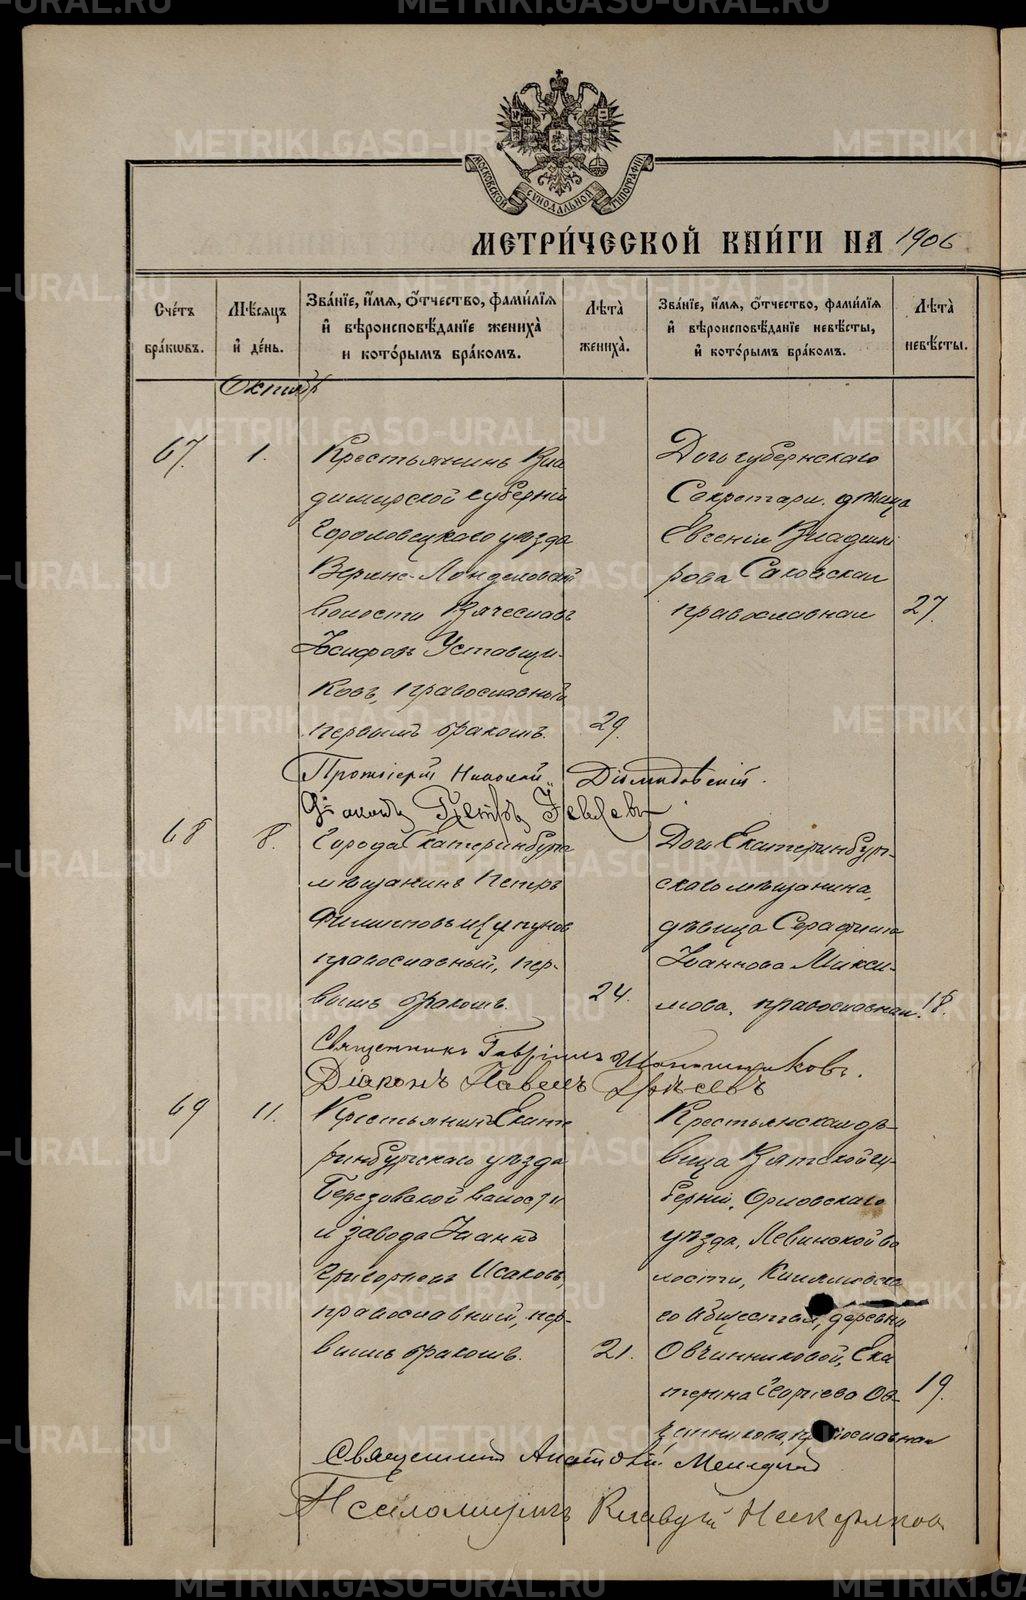 МОСКОВСКОЙ СѴНОДАЛЬНОЙ ТИПОГРАФІИ
МЕТРИ́ЧЕСКОЙ КНИ́ГИ НА 1906
Сче́тъ бра́кѡвъ.
Мѣ́сяцъ и де́нь.
Зва́нїе, и́мя, ѻ́тчество, фами́лїя и вѣроисповѣ́данїе жениха̀ и кото́рымъ бра́комъ.
Лѣ́та жениха̀.
Зва́нїе, и́мя, ѻ́тчество, фами́лїя и вѣроисповѣ́данїе невѣ́сты, и кото́рымъ бра́комъ.
Лѣ́та невѣ́сты.
Октябр
67. 1.
Крестьянинъ Вла
димирской губерніи
Гороховецкаго уѣзда
Верхне-Ландеховской
волости Вячеславъ
Іосифовъ Уставщи-
ковъ, православный
первымъ бракомъ. 29.
Дочь губернскаго
Секретаря дѣвица
Евгенія Владими
рова Саковская
православная 27.
Протоіерей Николай Діомидовскій.
Діаконъ Петръ
68 8.
Города Екатеринбурга
мѣщанинъ Петръ
Филипповъ
православный, пер-
вымъ бракомъ. 24.
Дочь Екатеринбург-
скаго мѣщанина,
дѣвица Серафима
Іоаннова Макси-
мова, православная. 18.
Священникъ Гавріилъ
Діаконъ Павелъ
69 11.
Крестьянинъ Екате
ринбургскаго уѣзда
Березовской волости
и завода Іоаннъ
Григорьевъ Исаковъ,
православный, пер-
вымъ бракомъ. 21.
Крестьянская дѣ-
вица Вятской гу-
берніи, Орловскаго
уѣзда, Левинской во
лости,
го общества, деревни
Овчинниковой, Ека
терина Георгіева Ов- 19.
чинникова, православная
Священникъ Анатолій
Псаломщикъ Клавдій Некрасов
METRIKI.GASO-URAL.RU